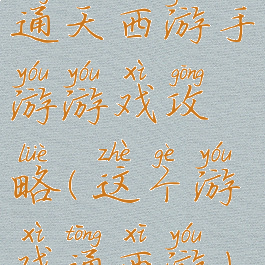 通天西游手
yóu yóu xì gōng
游游戏攻
lüè zhè gè yóu
略(这个游
xì tōng xī yóu
戏通西游)